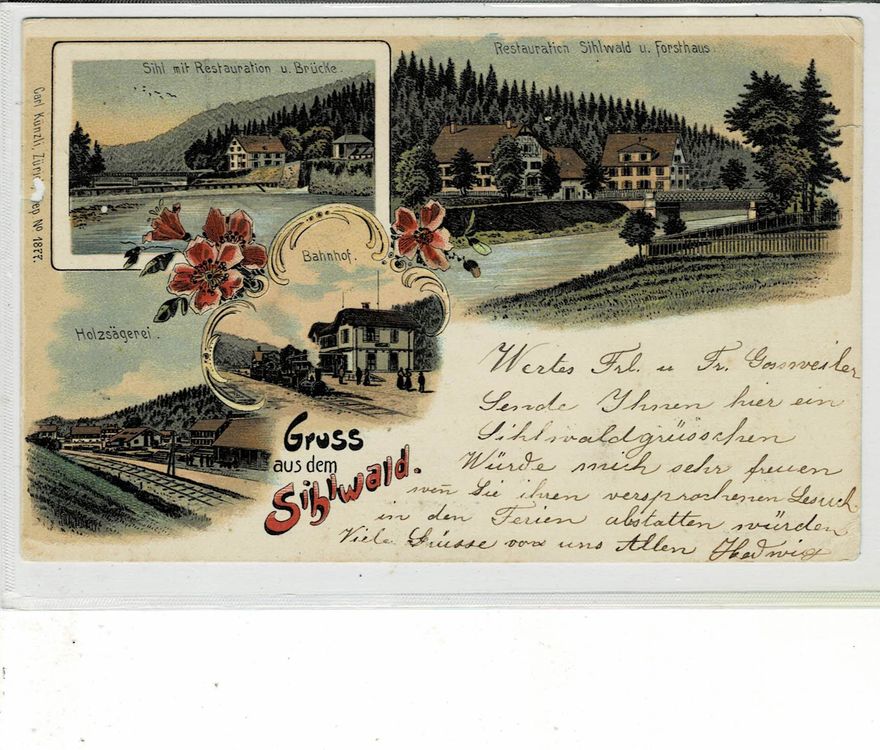 Sihl mit Restauration u. Brücke.
Restauration Sihlwald u. Forsthaus.
Carl Künzli, Zürich No 1877.
Bahnhof.
Holzsägerei.
Gruss
aus dem
Sihlwald.
Wertes Frl. u Fr. Gossweiler
Sende Ihnen hier ein
Sihlwaldgrüsschen
Würde mich sehr freuen
wen Sie ihren versprochenen Besuch
in den Ferien abstatten würden
Viele Grüsse von uns Allen Hedwig